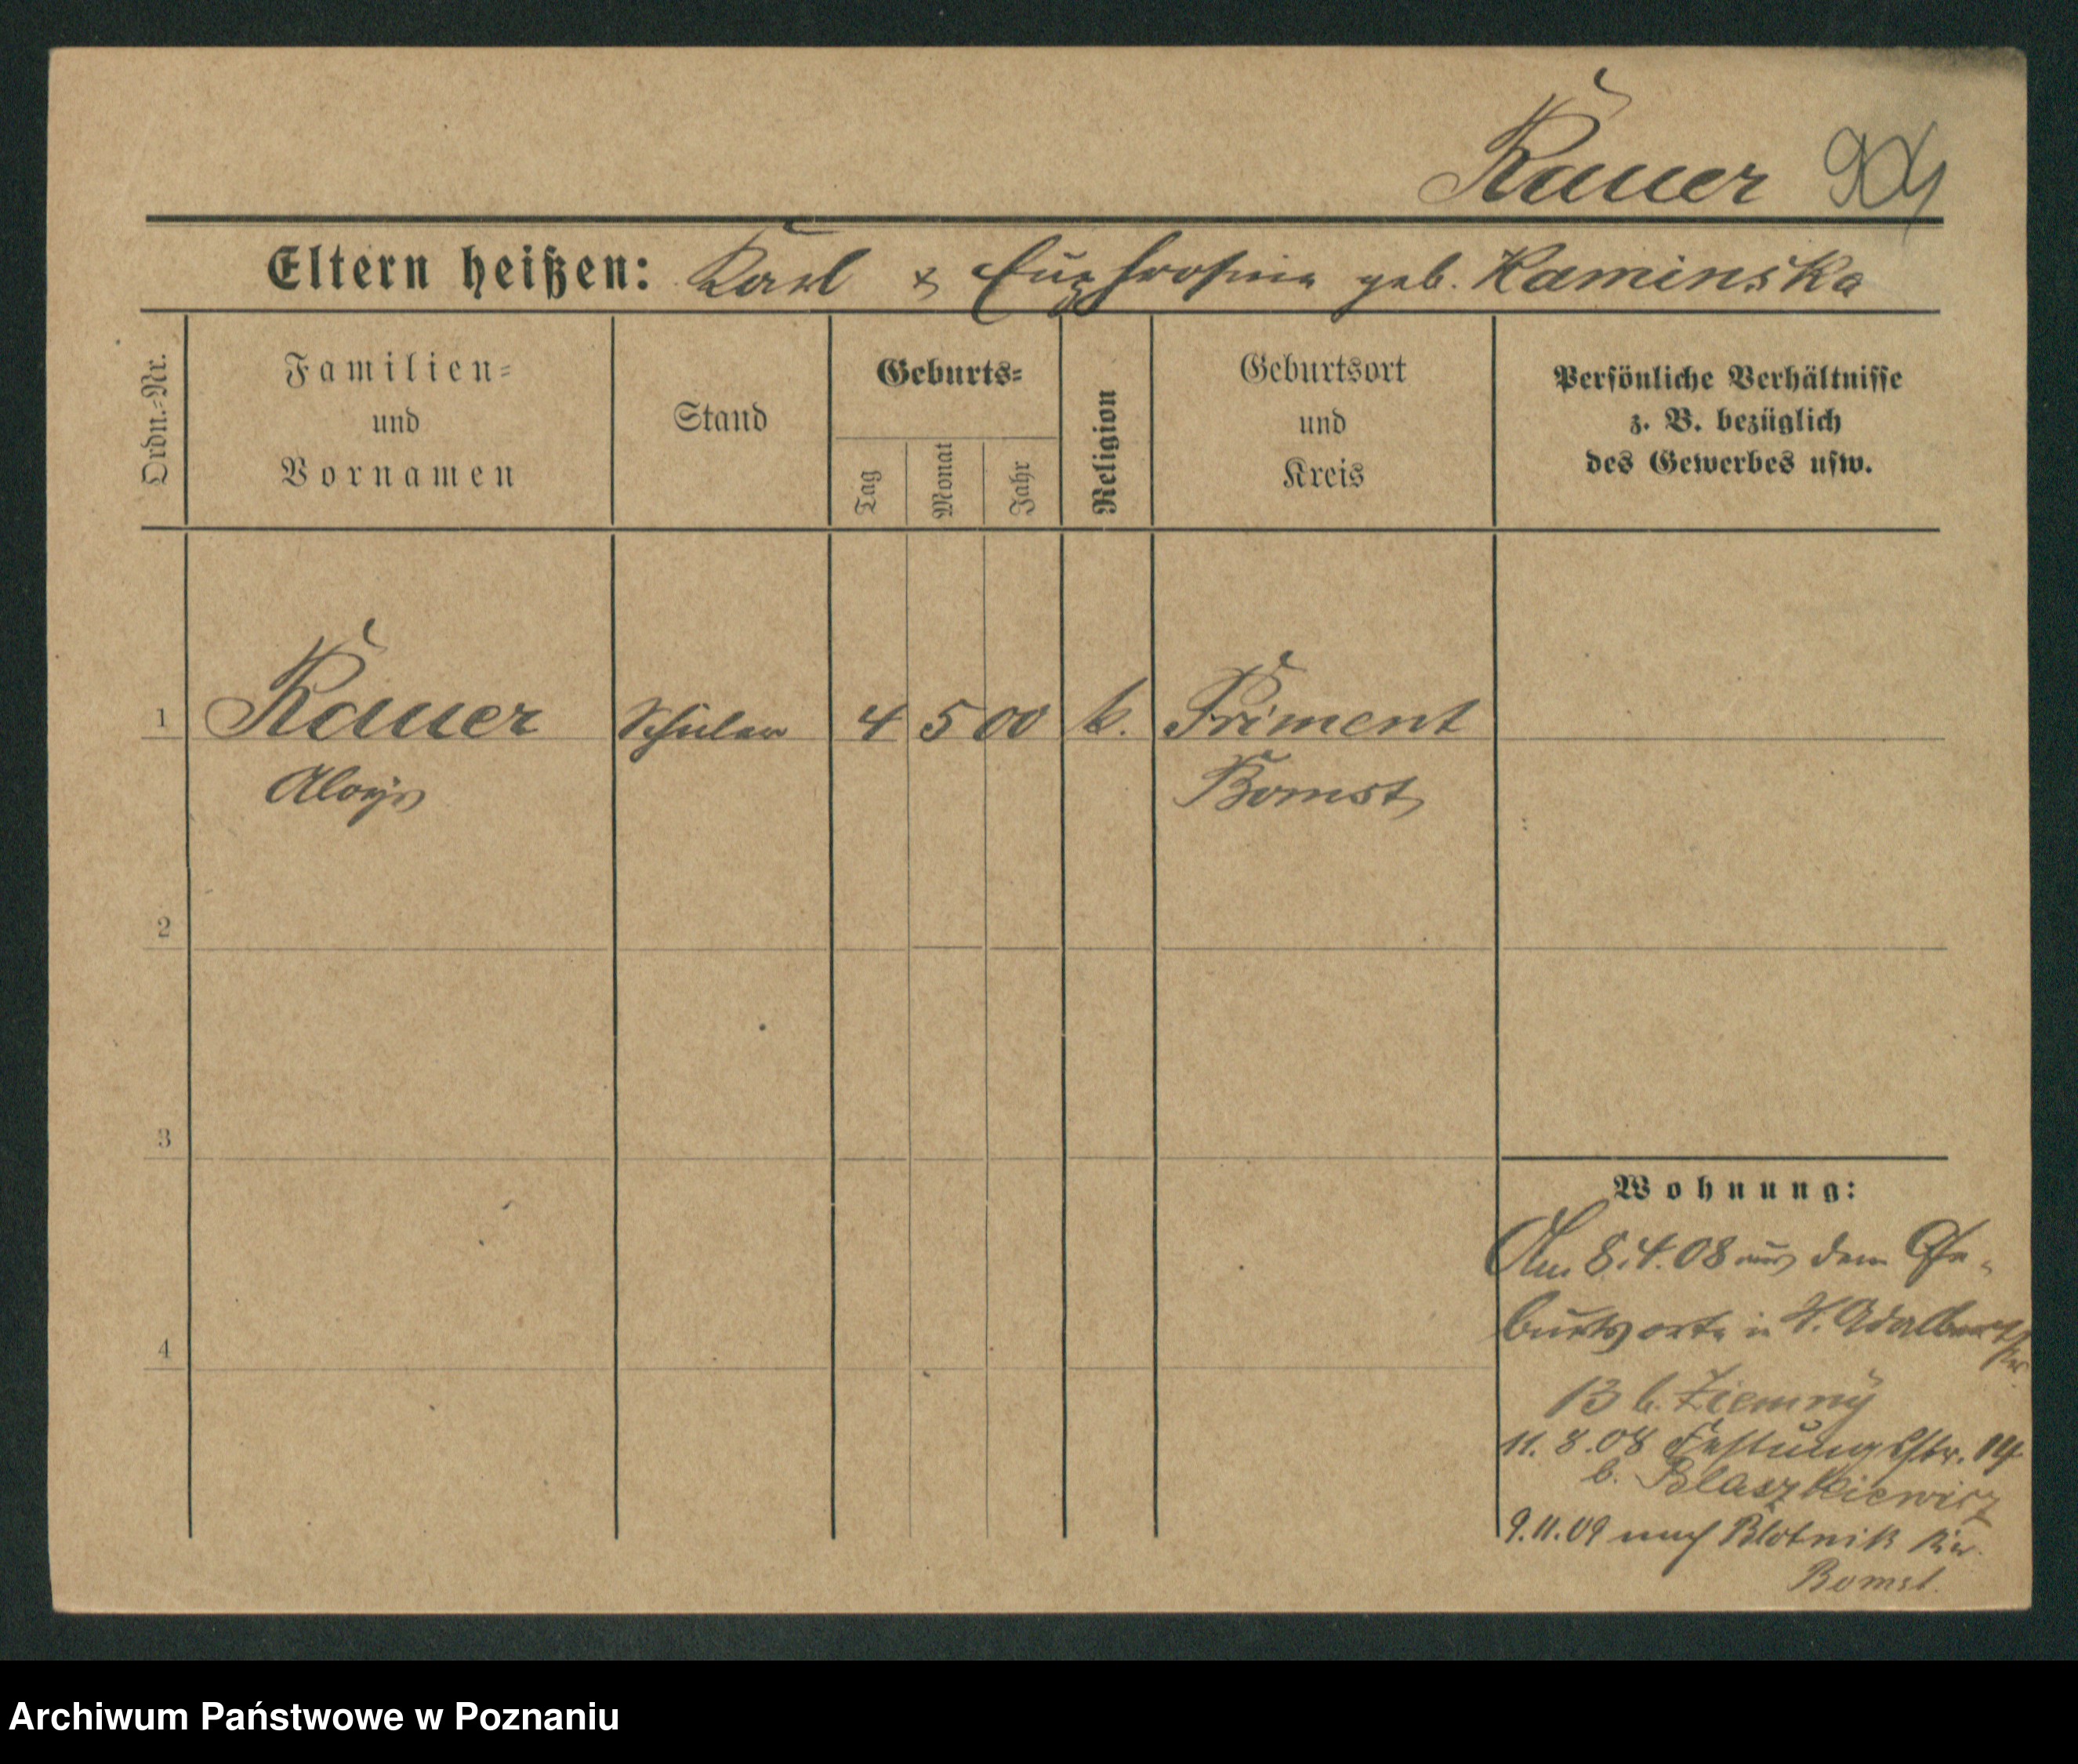 Kauer 904
Eltern heißen: Karl & Euphrosine geb. Kaminska
Ordn.-Nr.
Familien-
und
Vornamen
Stand
Geburts-
Tag
Monat
Jahr
Religion
Geburtsort
und
Kreis
Persönliche Verhältnisse
z. B. bezüglich
des Gewerbes usw.
1 Kauer Schüler 4 5 00 k. Priment
Aloys Bomst
2
3
Wohnung:
Am 8.4.08 aus dem Ge-
burtsorte n. Adalbertstr
4
13 b. Ziemny
11. 8.08 Festungsstr. 14
b. Blaszkiewicz
9.11.09 nach Blotnik Kr.
Bomst.
Archiwum Państwowe w Poznaniu